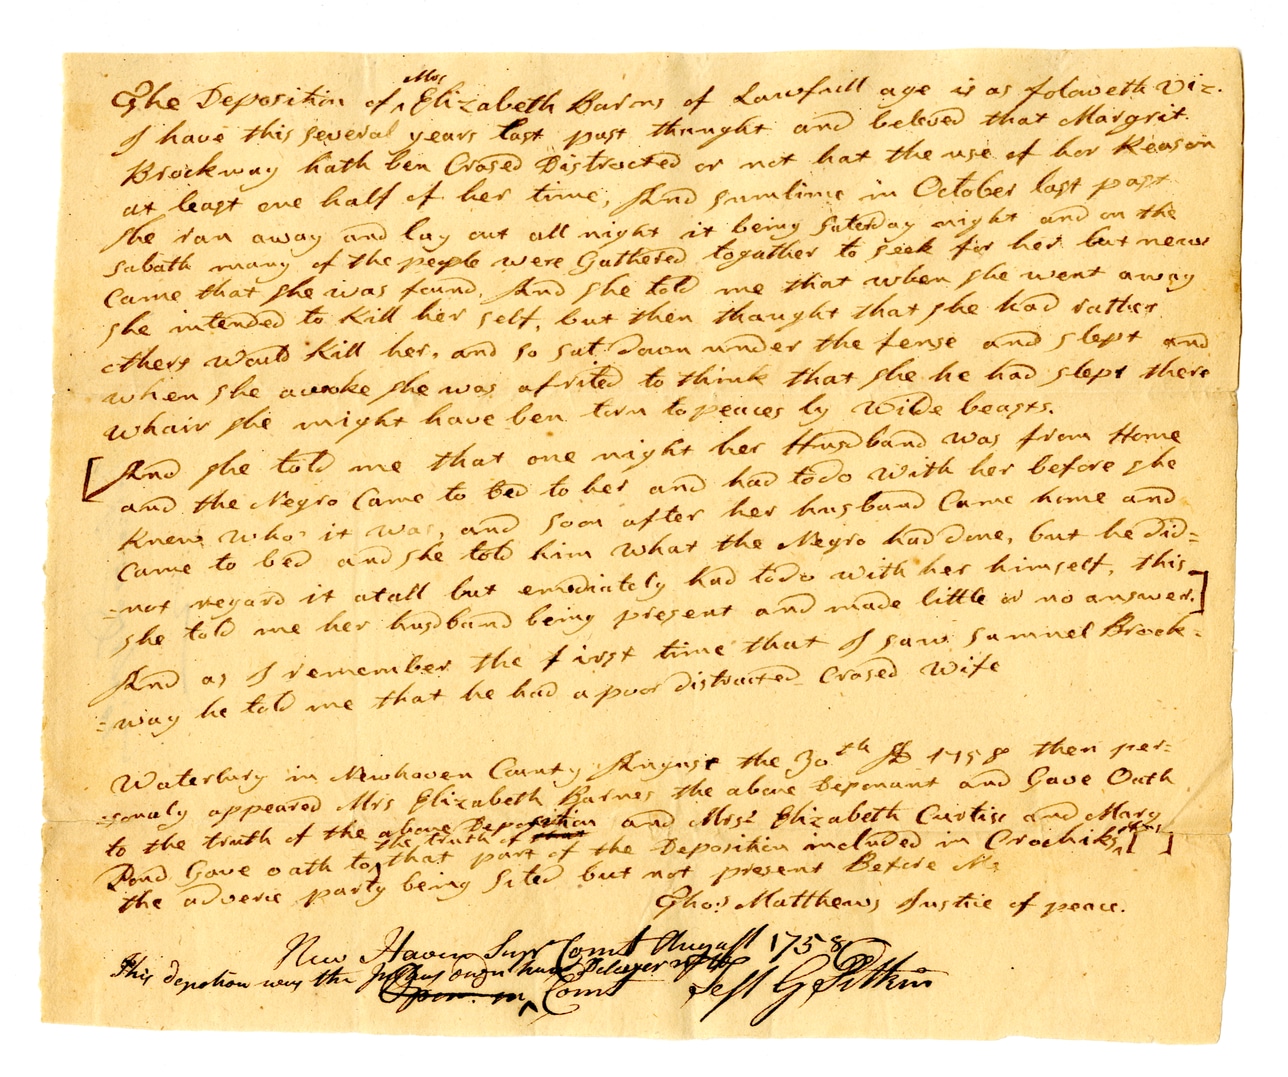 The Deposition of Mrs Elizabeth Barns of Lawfull age is as folaweth Viz.
I have this several years last past thaught and beleved that Margrit
Brockway hath ben Crased Distracted or not hat the use of her Reason
at least one half of her time, And sumtime in October last past
she ran away and lay out all night it being Saterday night and on the
Sabath many of the people were Gathered togather to seek for her but news
Came that she was found, And she told me that when she went away
she intended to kill her self, but then thaught that she had rather
others would kill her, and so sat down under the fense and slept and
when she awoke she was afrited to think that she he had slept there
whair she might have ben torn to peaces by Wilde beasts.
[And she told me that one night her Husband was from Home
and the Negro Came to bed to her and had todo with her before she
knew who it was, and soon after her husband Came home and
Came to bed and she told him what the Negro had done, but he did=
=not regard it atall but emediately had todo with her himself, this
she told me her husband being present and made little or no answer.]
And as I remember the first time that I saw Samuel Brock=
=way he told me that he had a poor distracted Crased Wife
Waterbury in Newhaven County August the 30th AD 1758 then per=
=sonaly appeared Mrs Elizabeth Barnes the above Deponant and Gave Oath
to the truth of the above Deposition and Mrs Elizabeth Curtiss and Mary
Pond Gave oath to the truth of that part of the Deposition included in Crochiks [ ]
the adverse party being Sited but not present Before Me
Thos Matthews Justice of peace.
New Haven Supr Court August 1758
This depotion was the Justices own hand
Open in Court Test G Pitkin